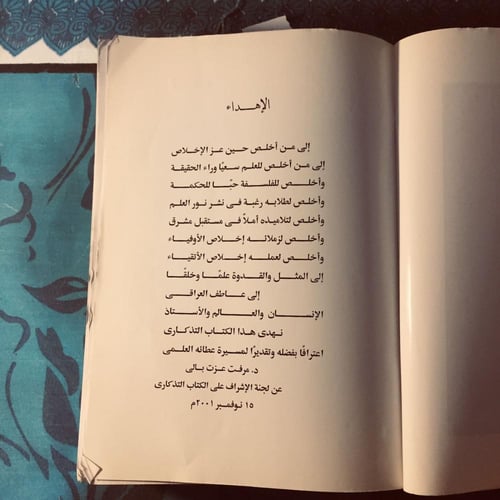 الإهداء
إلى من أخلص حين عز الإخلاص
إلى من أخلص للعلم سعيًا وراء الحقيقة
وأخلص للفلسفة حبًا للحكمة
وأخلص لطلابه رغبة فى نشر نور العلم
وأخلص لتلاميذه أملاً فى مستقبل مشرق
وأخلص لزملائه إخلاص الأوفياء
وأخلص لعمله إخلاص الأتقياء
إلى المثل والقدوة علمًا وخلقًا
إلى عاطف العراقى
الإنسان والعالم والأستاذ
نهدى هذا الكتاب التذكارى
اعترافًا بفضله وتقديرًا لمسيرة عطائه العلمى
د. مرفت عزت بالى
عن لجنة الإشراف على الكتاب التذكارى
١٥ نوفمبر ٢٠٠١م